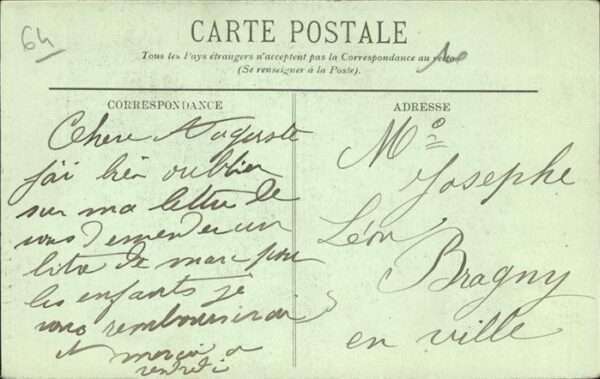 64
CARTE POSTALE
Tous les Pays étrangers n'acceptent pas la Correspondance au recto
(Se renseigner à la Poste).
CORRESPONDANCE
Chere Auguste
j'ai bien oublier
sur ma lettre de
vous demender un
litre de marc pour
les enfants je
vous rembourserai
et merci a
ADRESSE
Me
Josephe
Léon
Bragny
en ville